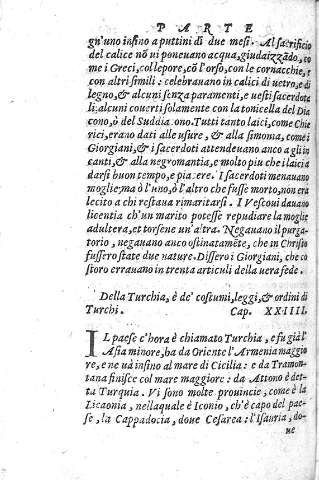 PARTE
gn'uno insino a puttini di due mesi. Al sacrificio
del calice nõ ui poneuano acqua, giudaizzãdo, co
me i Greci, col lepore, cõ l'orso, con le cornacchie, e
con altri simili: celebrauano in calici di uetro, e di
legno, & alcuni senza paramenti, e uesti sacerdota
li; alcuni couerti solamente con la tonicella del Dia
cono, ò del Sudaiacono. Tutti tanto laici, come Chie
rici, erano dati alle usure, & alla simonia, come i
Giorgiani, & i sacerdoti attendeuano anco a gli in
canti, & alla negromantia, e molto piu che i laici a
darsi buon tempo, e piacere. I sacerdoti menauano
moglie; ma ò l'uno, ò l'altro che fusse morto, non era
lecito a chi restaua rimaritarsi. I Vescoui dauano
licentia ch'un marito potesse repudiare la moglie
adultera, et torsene un'altra. Negauano il purga-
torio, negauano anco ostinatamẽte, che in Christo
fussero state due nature. Dissero i Giorgiani, che co
storo errauano in trenta articuli della uera fede.
Della Turchia, è de' costumi, leggi, & ordini di
Turchi. Cap. XXIIII.
IL paese c'hora è chiamato Turchia, e fu già l'
Asia minore, ha da Oriente l'Armenia maggio
re, e ne uà insino al mare di Cicilia: e da Tramon-
tana finisce col mare maggiore: da Attono è det-
ta Turquia. Vi sono molte prouincie, come è la
Licaonia, nella quale è Iconio, ch'è capo del pae-
se, la Cappadocia, doue Cesarea: l'Isauria, do-
ue